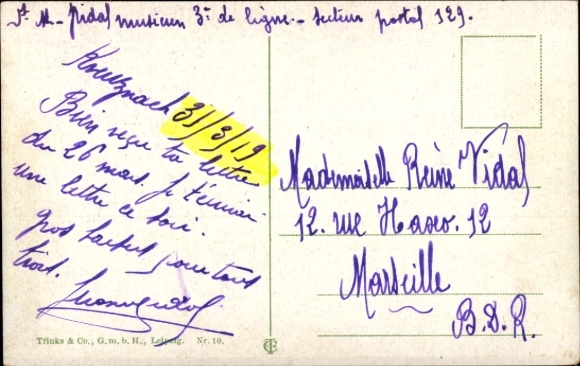 Vidal musicien 3e de ligne - secteur postal 129.
Kreuznach 31/3/19
Bien reçu ta lettre
du 26 mars. Je t'écrirai
une lettre ce soir.
Gros baisers pour tous
trois.
Mademoiselle Reine Vidal
12. rue Haxo. 12
Marseille
B.D.R.
Trinks & Co., G.m.b.H., Leipzig. Nr. 10.